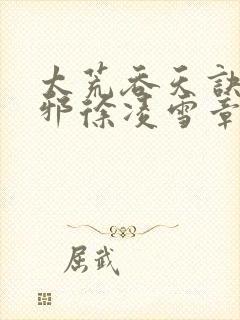 大荒吞天诀
邪徐凌雪章
屈武